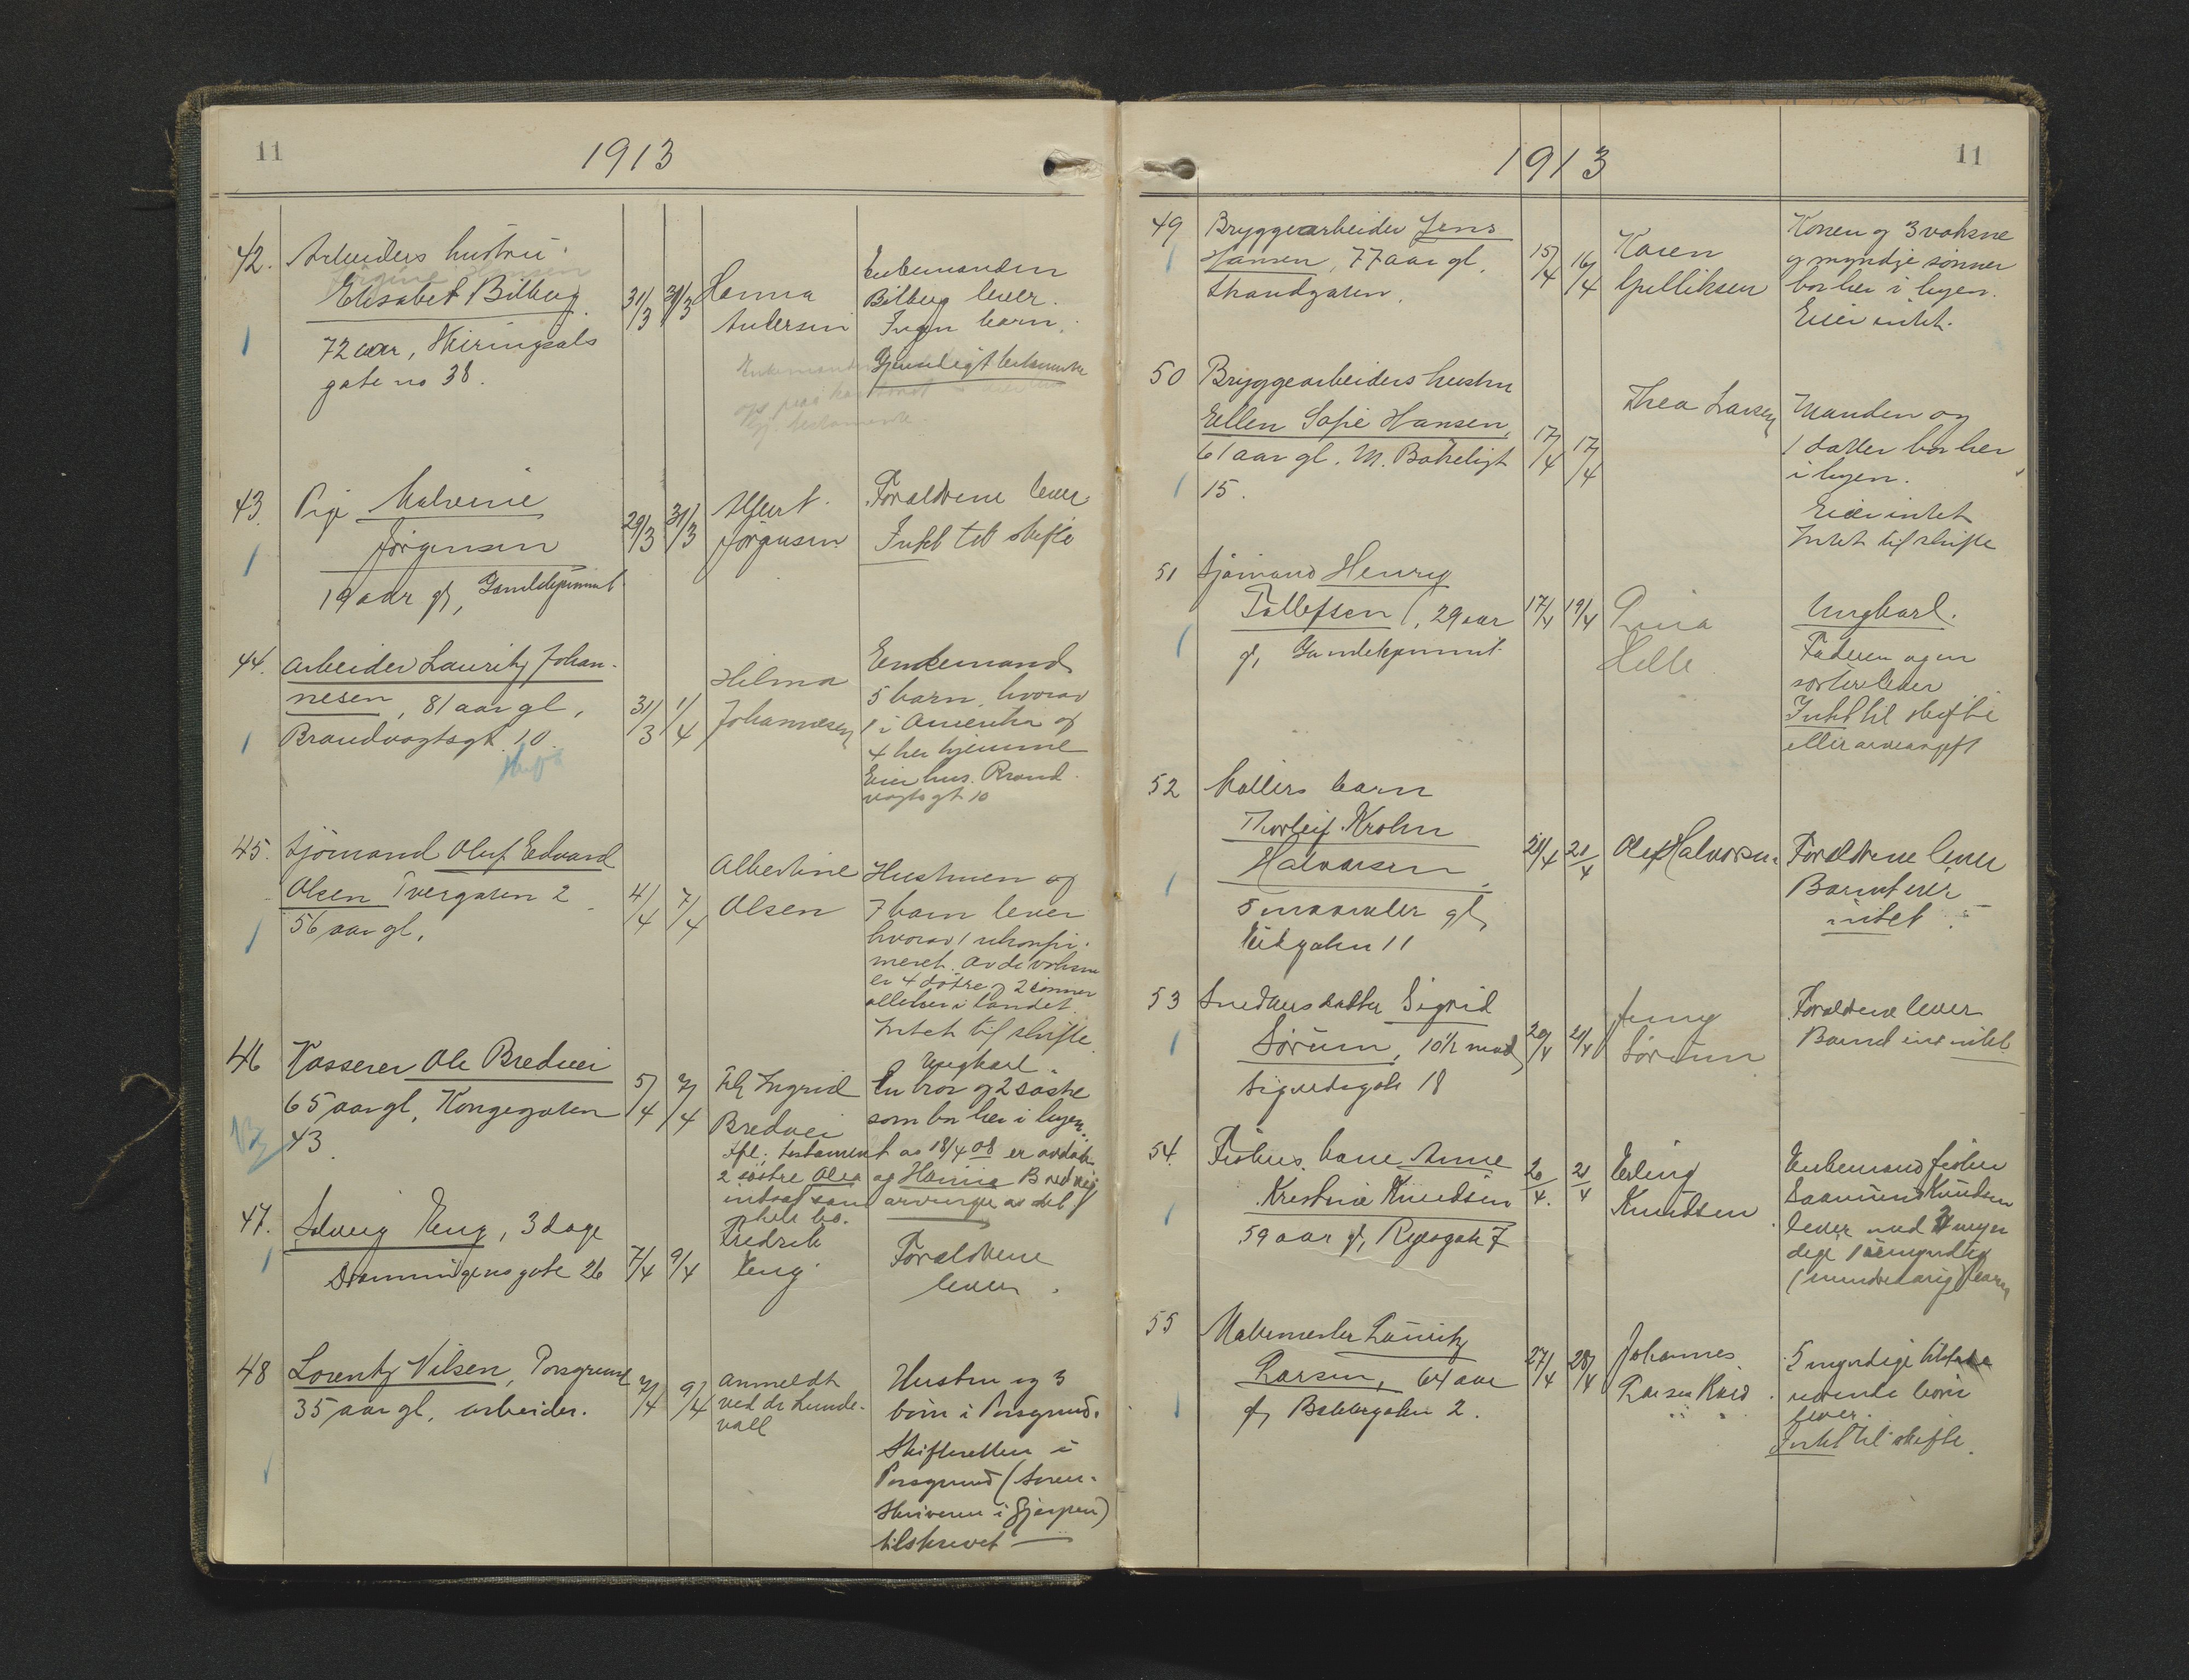 11
1913
42. Arbeiders hustru
Elisabet Bilberg
72 aar, Skiringsals
gate no 38.
31/3 31/3
Hanna
Andersen
Enkemanden
Bilberg lever.
Ingen barn.
Gjensidigt testamente
43. Pige Malvine
Jörgensen
19 aar gl, Gamlekjemmet
29/3 31/3
Hjert
Jörgensen
Forældrene lever
Intet til skifte
44. Arbeider Lauritz Johan-
nesen, 81 aar gl,
Brandvagtsgt. 10.
31/3 1/4
Hilma
Johannesen
Enkemand
5 barn, hvorav
1 i Amerika og
4 her hjemme
Eier hus. Brand-
vagtsgt 10
45. Sjömand Oluf Edvard
Olsen Tvergaten 2
56 aar gl,
4/4 7/4
Albertine
Olsen
Hustruen og
7 barn lever
hvorav 1 ukonfir-
meret. Av de voksne
er 4 döttre og 2 sönner
alle her i landet.
Intet til skifte.
46 Kasserer Ole Bredvei
65 aar gl, Kongegaten
43.
5/4 7/4
Frk Ingrid
Bredvei
Ungkarl.
En bror og 2 søstre
som bor her i byen.
Ifl. testament av 18/4 08 er avdøde
2 søstre Olea og Hanna Bredvei
indsat som arvinger av det
hele bo.
47. Solveig Eeng, 3 dage
Dronningensgate 26
7/4 9/4
Fredrik
Eeng
Forældrene
lever.
48 Lorentz Nilsen, Porsgrund
35 aar gl, arbeider.
7/4 9/4
anmeldt
ved dr Lunde-
vall
Hustru og 3
börn i Porsgrund.
Skifteretten i
Porsgrund (Soren-
skriveren i Gjerpen)
tilskrevet
1913
11
49 Bryggearbeider Jens
Hansen, 77 aar gl,
Strandgaten.
15/4 16/4
Karen
Gulliksen
Konen og 3 voksne
og myndige sönner
bor her i byen.
Eier intet.
50 Bryggearbeiders hustru
Ellen Sofie Hansen,
61 aar gl. M. Bakeligt
15.
17/4 17/4
Thea Larsen
Manden og
1 datter bor her
i byen.
Eier intet
Intet til skifte
51 Sjömand Henry
Tollefsen, 29 aar
gl, Gamlekjemmet
17/4 19/4
Lina
Helle
Ungkarl.
Faderen og en
søster lever
Intet til skifte
eller arveavgift
52 Møllers barn
Thorleif Krohn
Halvorsen
5 maaneder gl,
Eikgaten 11
21/4
Olaf Halvorsen
Forældrene lever
Barnet eier
intet
53 Snedkers datter Sigrid
Sörum, 10 1/2 mnd,
Sigurdsgate 18
20/4 21/4
Jenny
Sörum
Forældrene lever
Barnet eier intet
54. Fiskers kone Anne
Kristine Knudsen
59 aar gl, Rygesgate 7
20/4. 21/4
Erling
Knudsen
Enkemand fisker
Knudsen
lever med 3 myn-
dige 1 umyndig
(mindreaarig) barn
55 Malermester Lauritz
Larsen, 64 aar
gl, Bakkergaten 2.
27/4 28/4
Johannes
Larsen
5 myndige tilstede-
værende börn
lever.
Intet til skifte.